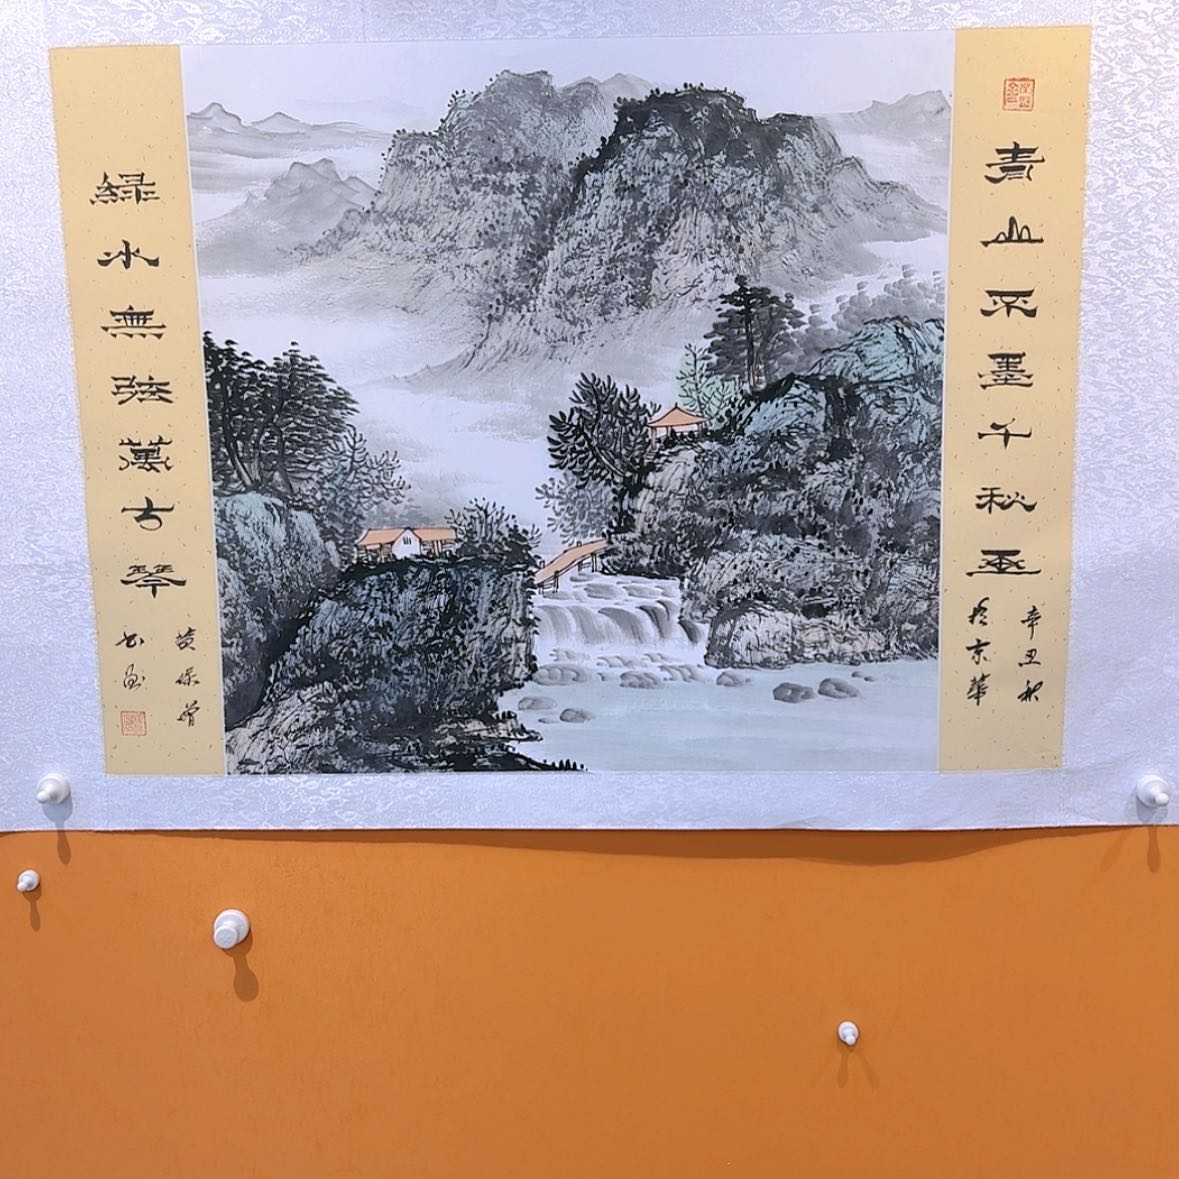 青山不墨千秋画
辛丑秋
於京華
緑水無弦萬古琴
黄保曾